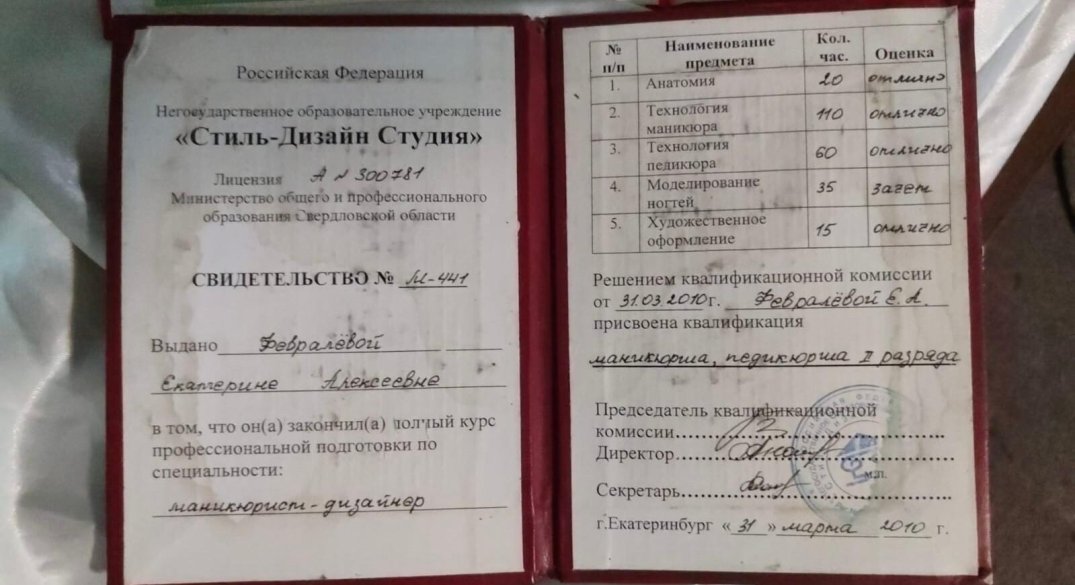 Российская Федерация
Негосударственное образовательное учреждение
«Стиль-Дизайн Студия»
Лицензия А № 300781
Министерство общего и профессионального
образования Свердловской области
СВИДЕТЕЛЬСТВО № М-441
Выдано Февралёвой
Екатерине Алексеевне
в том, что он(а) закончил(а) полный курс
профессиональной подготовки по
специальности:
маникюрист-дизайнер
№ п/п Наименование предмета Кол. час. Оценка
1. Анатомия 20 отлично
2. Технология маникюра 110 отлично
3. Технология педикюра 60 отлично
4. Моделирование ногтей 35 зачет
5. Художественное оформление 15 отлично
Решением квалификационной комиссии
от 31.03.2010г. Февралёвой Е.А.
присвоена квалификация
маникюрша, педикюрша II разряда
Председатель квалификационной
комиссии
Директор
М.П.
Секретарь
г.Екатеринбург « 31 » марта 2010 г.